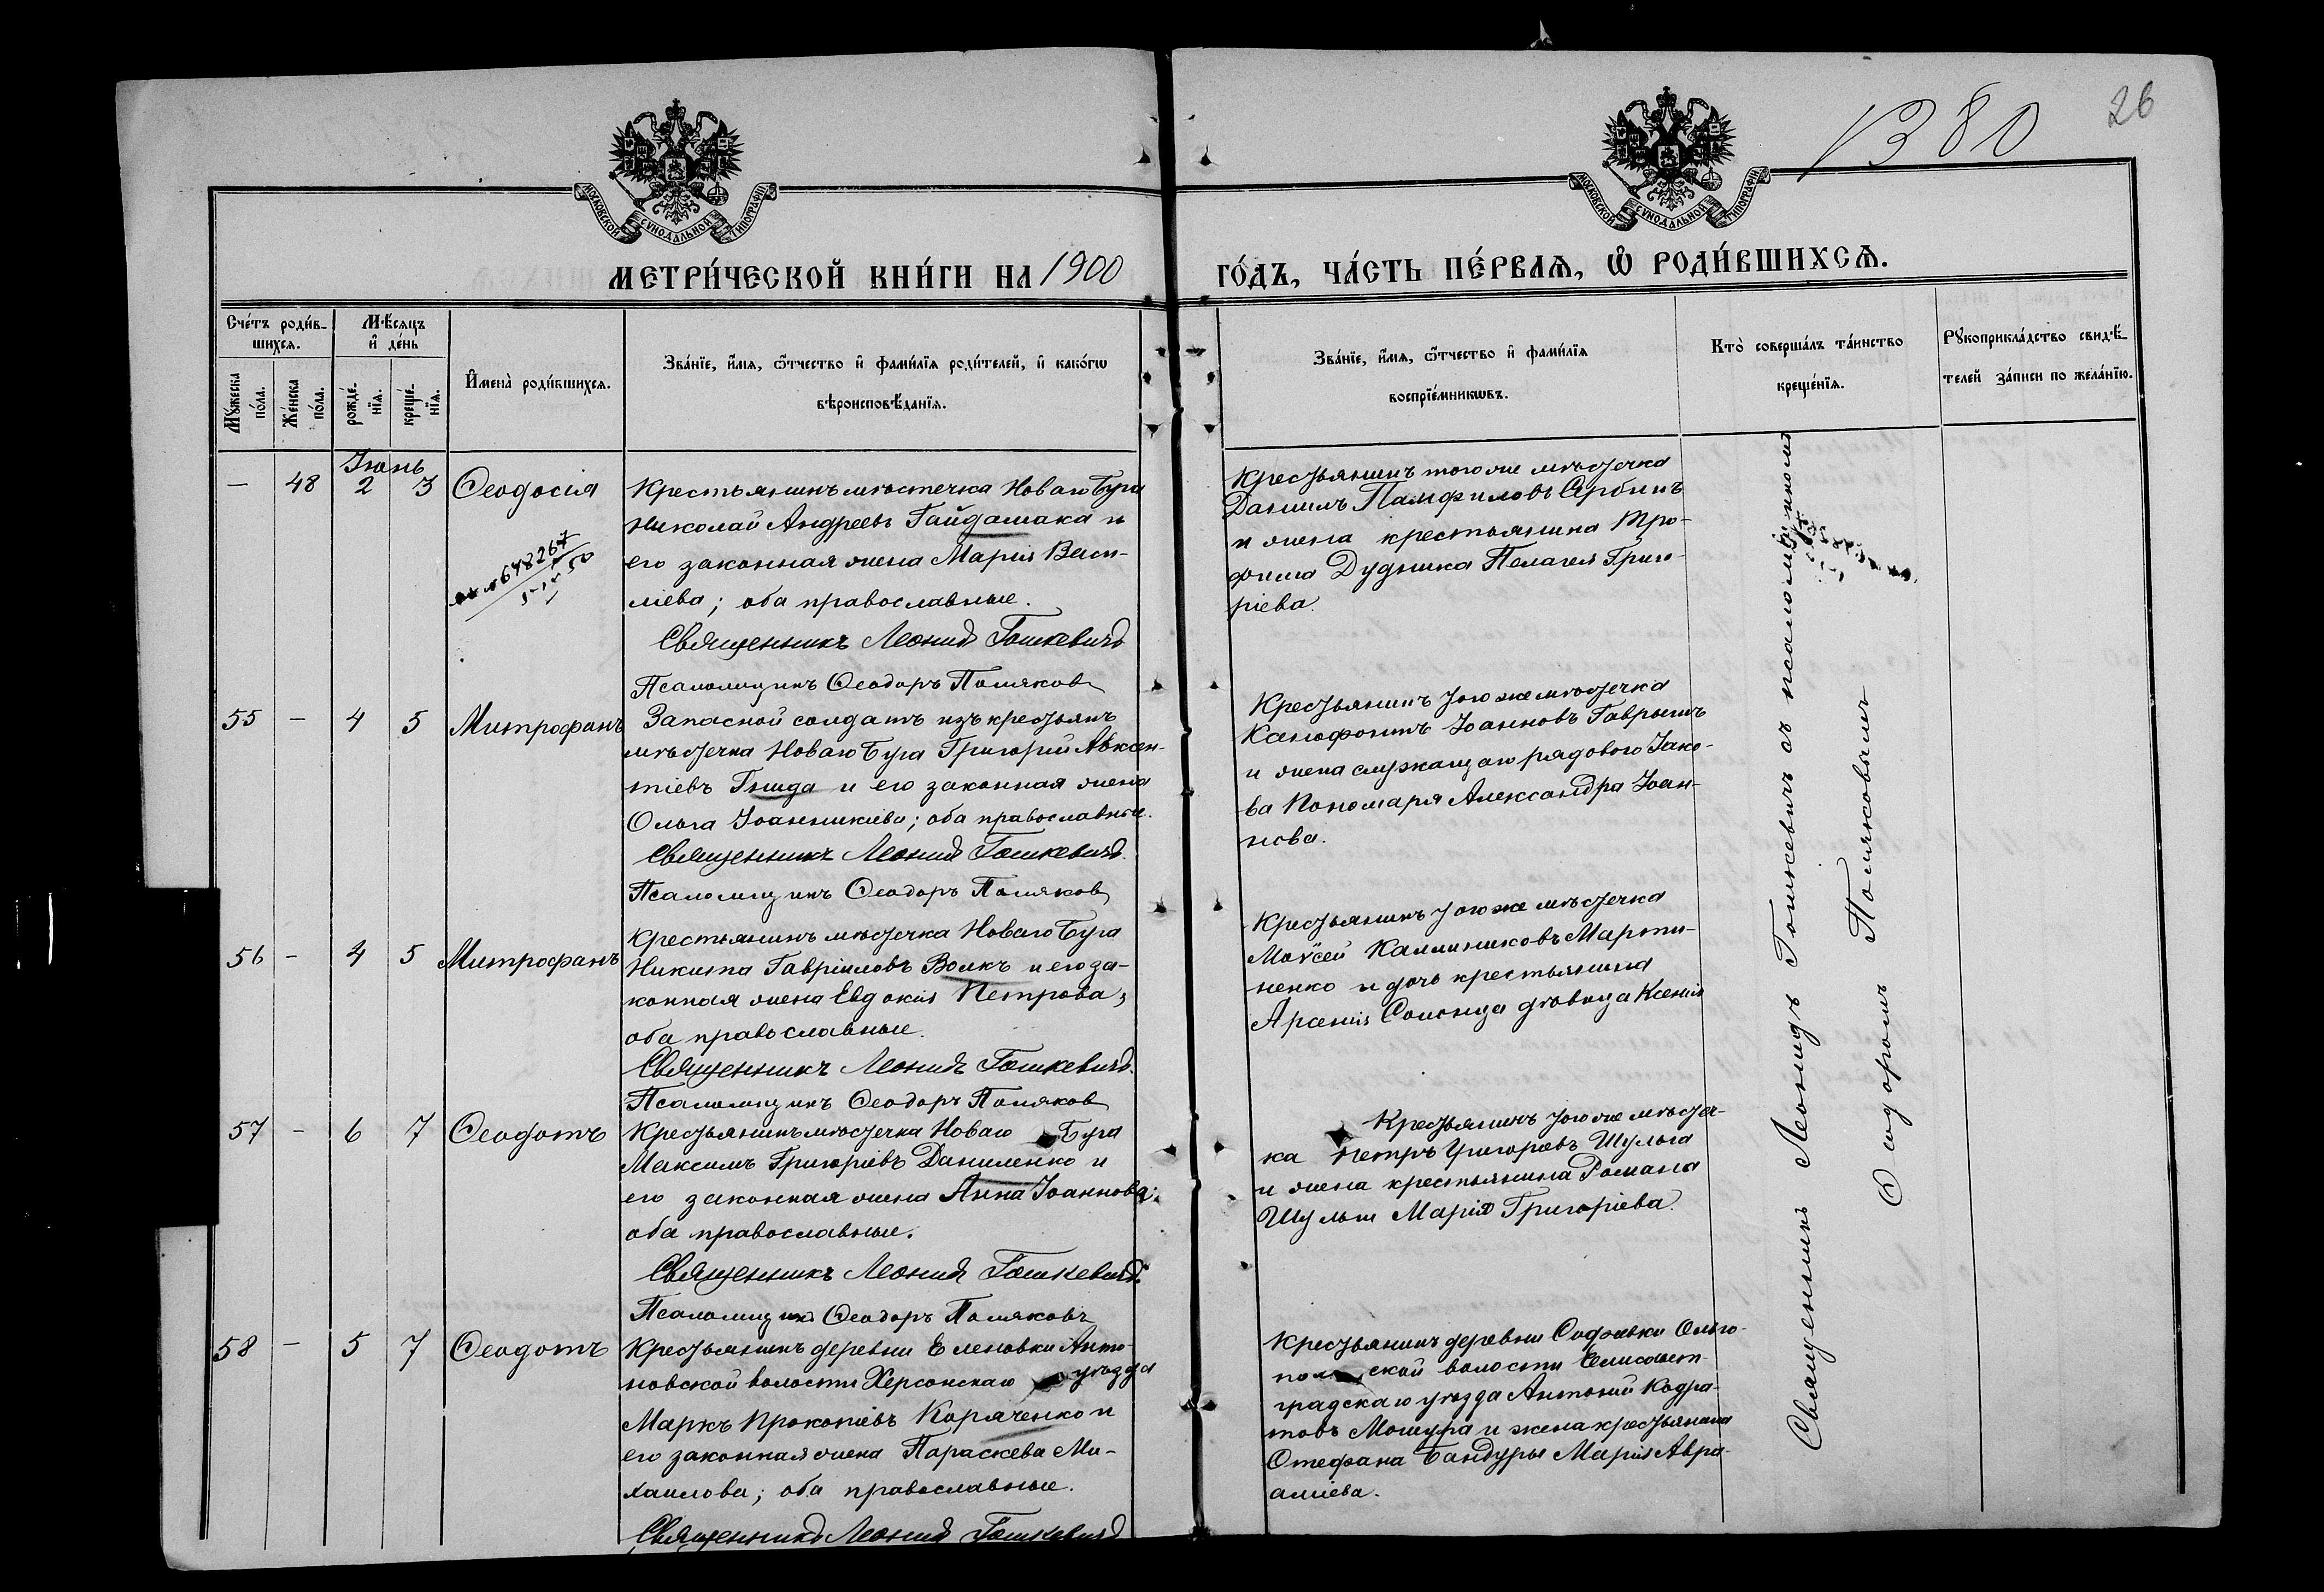 1380
26
МОСКОВСКОЙ СѴНОДАЛЬНОЙ ТИПОГРАФІИ
МОСКОВСКОЙ СѴНОДАЛЬНОЙ ТИПОГРАФІИ
МЕТРИ́ЧЕСКОЙ КНИ́ГИ НА 1900
ГО́ДЪ, ЧА́СТЬ ПЕ́РВАѦ, Ѡ҆ РОДИ́ВШИХСѦ.
Сче́тъ роди́в-
шихсѧ.
Мꙋ́жеска
по́ла.
Же́нска
по́ла.
Мѣ́сѧцъ
и҆ де́нь
рожде́-
нїѧ.
креще́-
нїѧ.
И҆мена̀ роди́вшихсѧ.
Зва́нїе, и҆́мѧ, ѻ҆́тчество и҆ фами́лїѧ роди́телей, и҆ како́гѡ
вѣроисповѣ́данїѧ.
Зва́нїе, и҆́мѧ, ѻ҆́тчество и҆ фами́лїѧ
воспрїе́мникѡвъ.
Кто̀ соверша́лъ та́инство
креще́нїѧ.
Рꙋкоприкла́дство свидѣ́-
телей за́писи по жела́нїю.
Іюнь
— 48 2 3 Ѳеодосія
Крестьянинъ мѣстечка Новаго Буга
Николай Андреевъ Гайдамака и
его законная жена Марія Васи-
ліева; оба православные.
Священникъ Леонидъ Гошкевичъ
Псаломщикъ Ѳеодоръ Поляковъ
Крестьянинъ того же мѣстечка
Даніилъ Памфиловъ Сербинъ
и жена крестьянина Тро-
фима Дудника Пелагея Григо-
ріева.
55 — 4 5 Митрофанъ
Запасной солдатъ изъ крестьянъ
мѣстечка Новаго Буга Григорій Авксен-
тіевъ Гнида и его законная жена
Ольга Іоанникіева; оба православные.
Священникъ Леонидъ Гошкевичъ.
Псаломщикъ Ѳеодоръ Поляковъ
Крестьянинъ того же мѣстечка
Ксенофонтъ Іоанновъ Гаврышъ
и жена служащаго рядового Іако-
ва Пономаря Александра Іоан-
нова.
56 — 4 5 Митрофанъ
Крестьянинъ мѣстечка Новаго Буга
Никита Гавріиловъ Волкъ и его за-
конная жена Евдокія Петрова;
оба православные.
Священникъ Леонидъ Гошкевичъ.
Псаломщикъ Ѳеодоръ Поляковъ
Крестьянинъ того же мѣстечка
Моѵсей Каллиниковъ Марты-
ненко и дочь крестьянина
Арсенія дѣвица Ксенія
57 — 6 7 Ѳеодотъ
Крестьянинъ мѣстечка Новаго Буга
Максимъ Григоріевъ Даниленко и
его законная жена Анна Іоаннова;
оба православные.
Священникъ Леонидъ Гошкевичъ.
Псаломщикъ Ѳеодоръ Поляковъ
Крестьянинъ того же мѣстеч-
ка Петръ Григорьевъ Шульга
и жена крестьянина Романа
Шульги Марія Григоріева.
58 — 5 7 Ѳеодотъ
Крестьянинъ деревни Еленовки Анто-
новской волости Херсонскаго уѣзда
Маркъ Прокопіевъ Коряченко и
его законная жена Параскева Ми-
хаилова; оба православные.
Священникъ Леонидъ Гошкевичъ
Крестьянинъ деревни Софіевки Ольго-
польской волости Елисавет-
градскаго уѣзда Антоній Кодра-
товъ и жена крестьянина
Стефана Бандуры Марія Авра-
аміева.
Священникъ Леонидъ Гошкевичъ съ псаломщикомъ
Ѳеодоромъ Поляковымъ